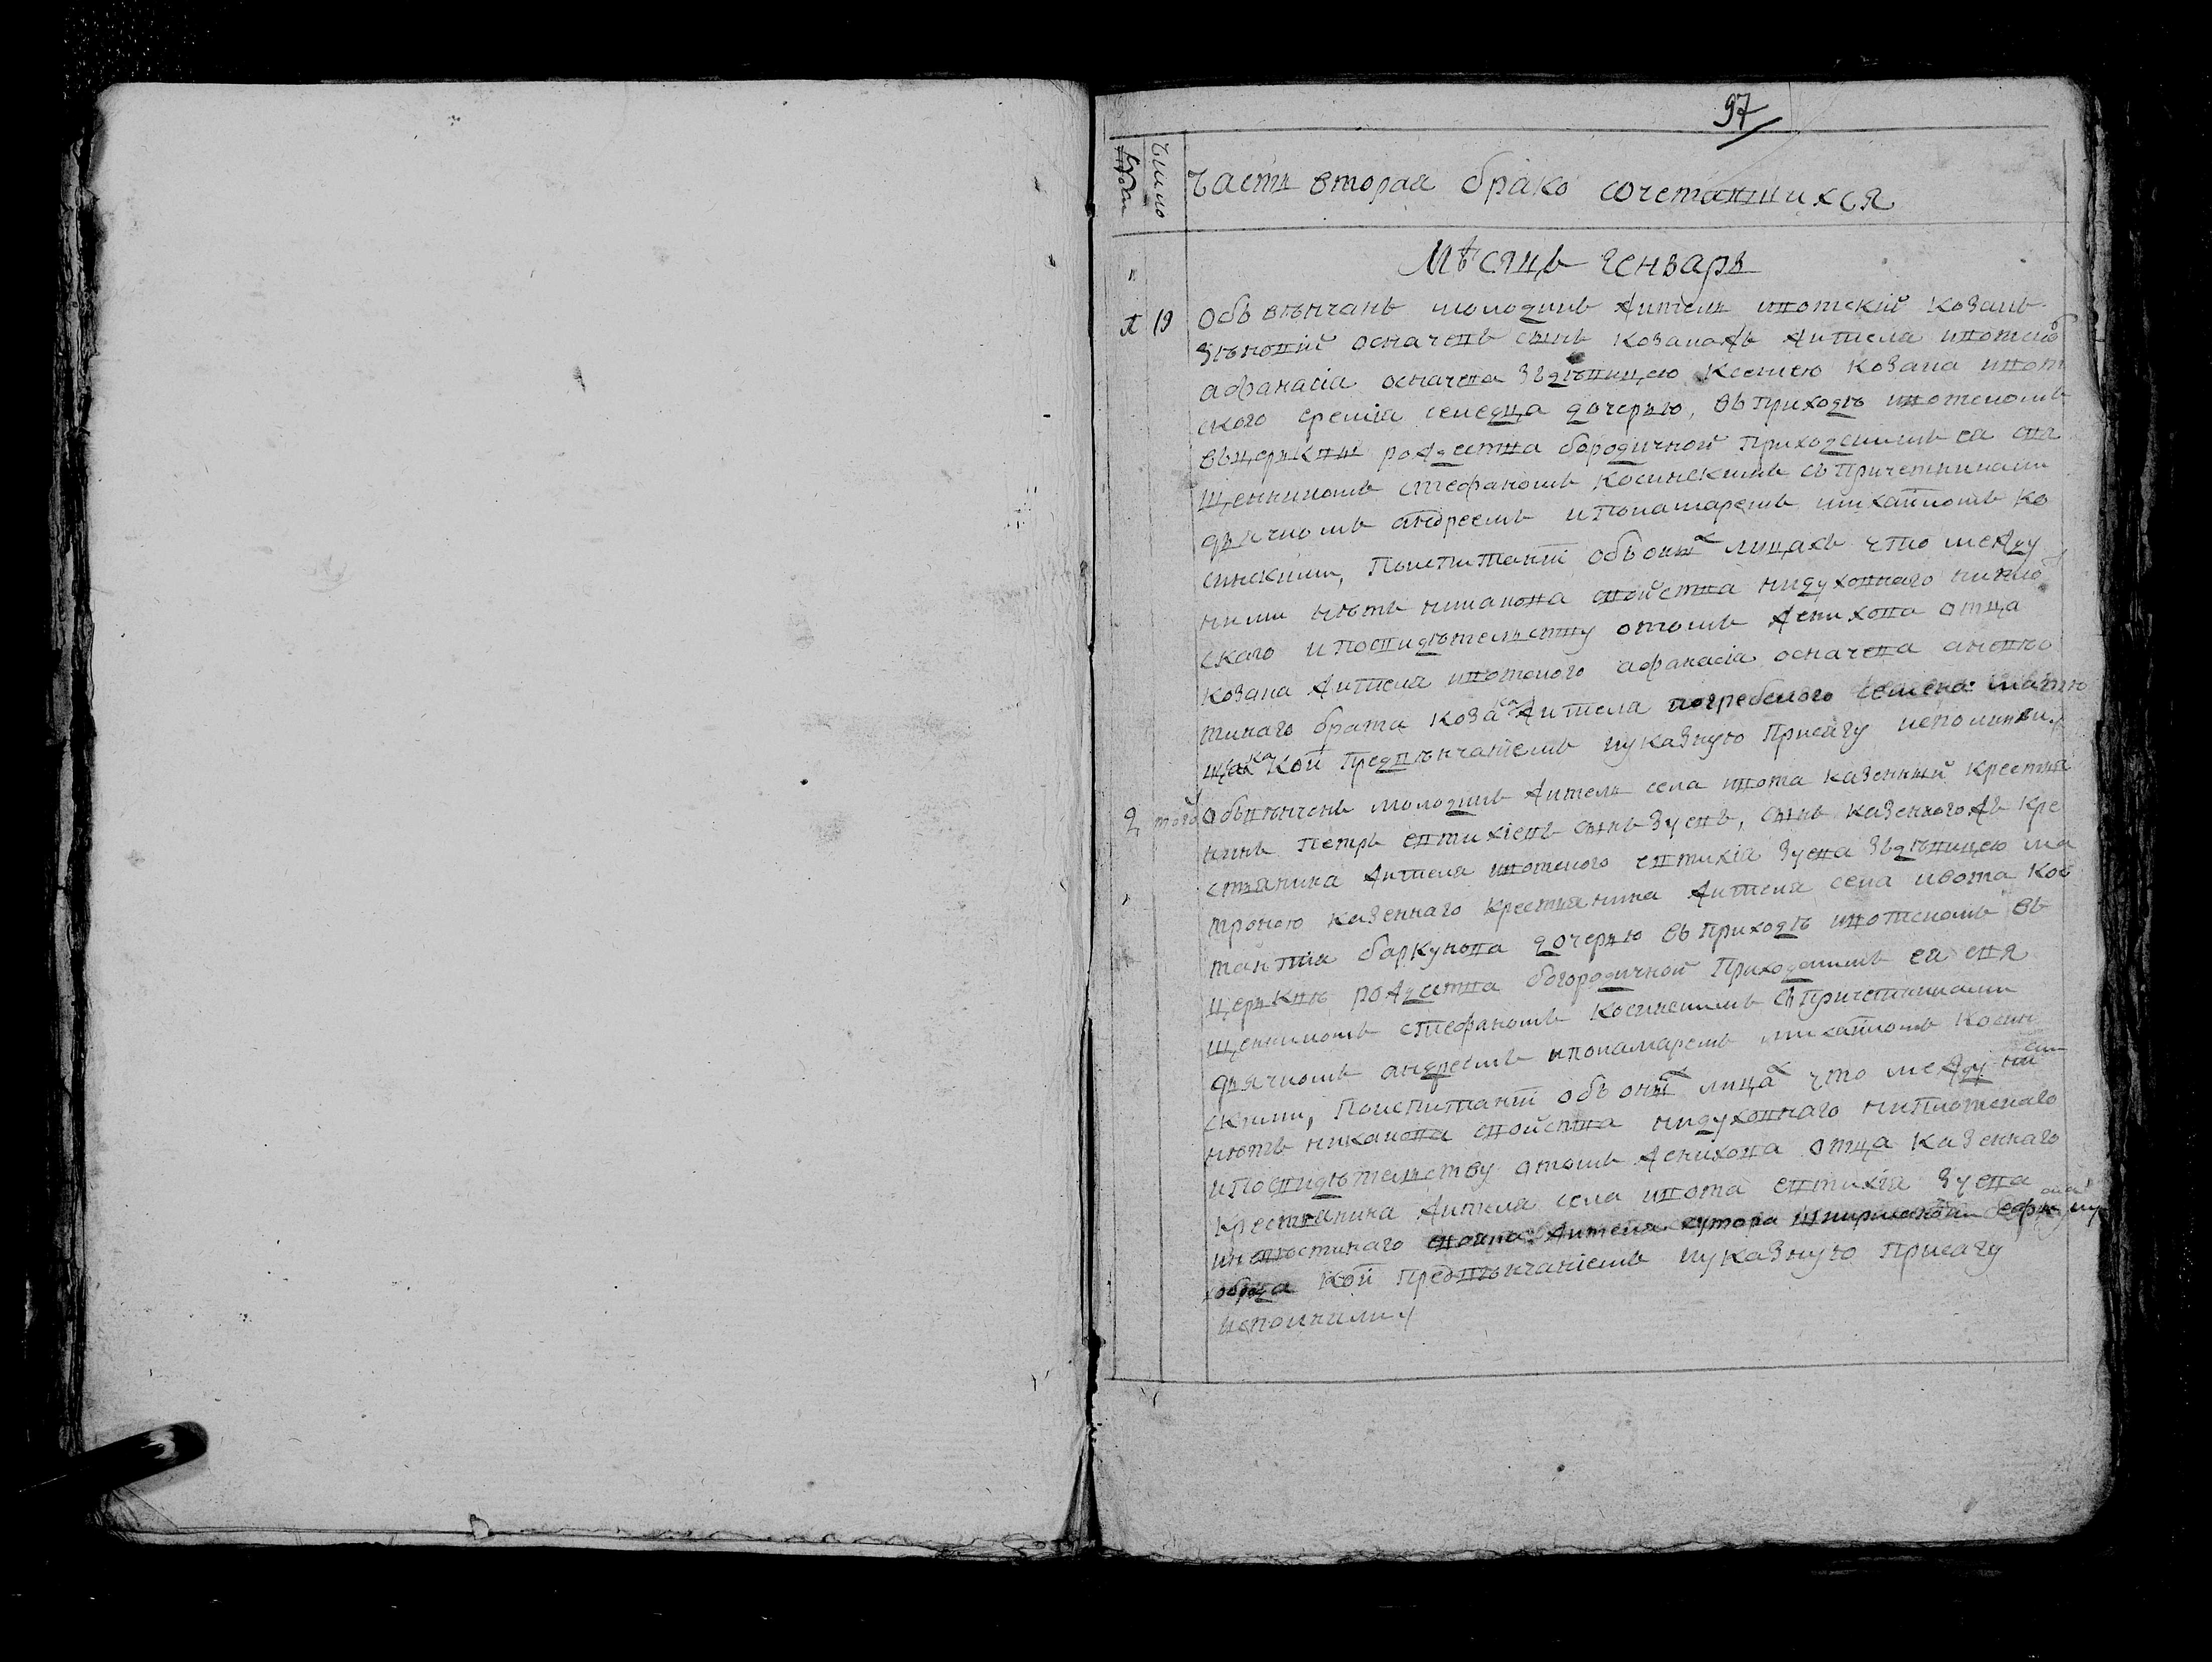 97
Число
часть вторая брако сочетавшихся
Мѣсяцъ генварь
1 19 Объ вѣнчанъ молодикъ житель ивотскій козакъ
осначевъ сынъ козакажъ жителя ивотско
афанасія осначева зъ дѣвицею Ксениею козака ивот
ского еремія дочерью, въ приходѣ ивотскомъ
въ церквѣ рождества бородичной приходскимъ еа свя
щенникомъ стефаномъ косинскимъ съ причетниками
дьячкомъ андреемъ и понамаремъ михаиломъ ко
синскими, по испитаніи объ оныхъ лицахъ что между
ними нѣтъ никакова свойства ни духовнаго ни пло
скаго и по свидѣтельству отомъ женихова отца
козака жителя ивотского афанасія осначева
брата козака жителя
кои предвѣнчаніемъ и указную присягу исполнили
2 того Объвѣнченъ молодикъ житель села ивота казенный крестья
нинъ петръ евтихіевъ сынъ зуевъ, сынъ казенногожъ кре
стьянина жителя ивотского евтихія зуева зъ дѣвицею ма
троною казеннаго крестьянина жителя села ивота кос
тантія баркунова дочерью въ приходѣ ивотскомъ въ
церквѣ рождества богородичной приходскимъ еа свя
щенникомъ стефаномъ косинскимъ съ причетниками
дьячкомъ андреемъ и понамаремъ михаиломъ косин
скими, по испитаніи объ оныхъ лицахъ что между ни
нѣтъ никакова свойства ни духовнаго ни плотскаго
и по свидѣтельству отомъ женихова отца казеннаго
крестьянина жителя села ивота евтихія зуева
жителя хутора
кои предвѣнчаніемъ и указную присягу
исполнили